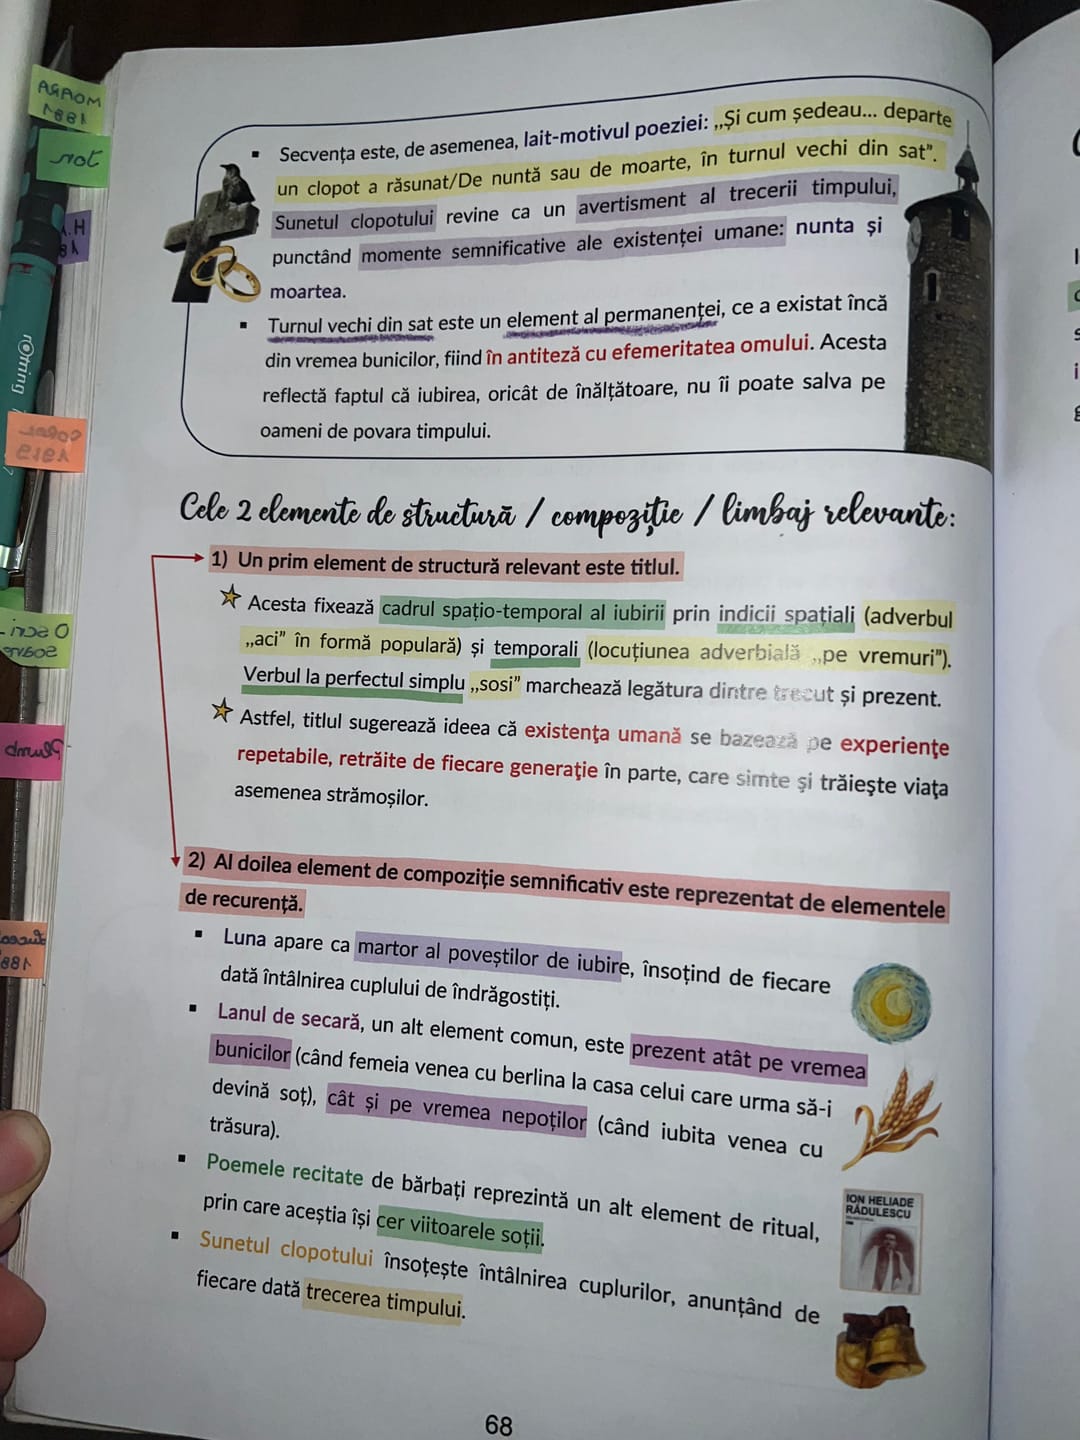 ▪ Secvența este, de asemenea, lait-motivul poeziei: „Și cum ședeau... departe
un clopot a răsunat/De nuntă sau de moarte, în turnul vechi din sat”.
Sunetul clopotului revine ca un avertisment al trecerii timpului,
punctând momente semnificative ale existenței umane: nunta și
moartea.
▪ Turnul vechi din sat este un element al permanenței, ce a existat încă
din vremea bunicilor, fiind în antiteză cu efemeritatea omului. Acesta
reflectă faptul că iubirea, oricât de înălțătoare, nu îi poate salva pe
oameni de povara timpului.
Cele 2 elemente de structură / compoziție / limbaj relevante:
1) Un prim element de structură relevant este titlul.
Acesta fixează cadrul spațio-temporal al iubirii prin indicii spațiali (adverbul
„aci” în formă populară) și temporali (locuțiunea adverbială „pe vremuri”).
Verbul la perfectul simplu „sosi” marchează legătura dintre trecut și prezent.
Astfel, titlul sugerează ideea că existența umană se bazează pe experiențe
repetabile, retrăite de fiecare generație în parte, care simte și trăiește viața
asemenea strămoșilor.
2) Al doilea element de compoziție semnificativ este reprezentat de elementele
de recurență.
▪ Luna apare ca martor al poveștilor de iubire, însoțind de fiecare
dată întâlnirea cuplului de îndrăgostiți.
▪ Lanul de secară, un alt element comun, este prezent atât pe vremea
bunicilor (când femeia venea cu berlina la casa celui care urma să-i
devină soț), cât și pe vremea nepoților (când iubita venea cu
trăsura).
▪ Poemele recitate de bărbați reprezintă un alt element de ritual,
prin care aceștia își cer viitoarele soții.
▪ Sunetul clopotului însoțește întâlnirea cuplurilor, anunțând de
fiecare dată trecerea timpului.
ION HELIADE
RĂDULESCU
68
MOARA
1881
not
rotring